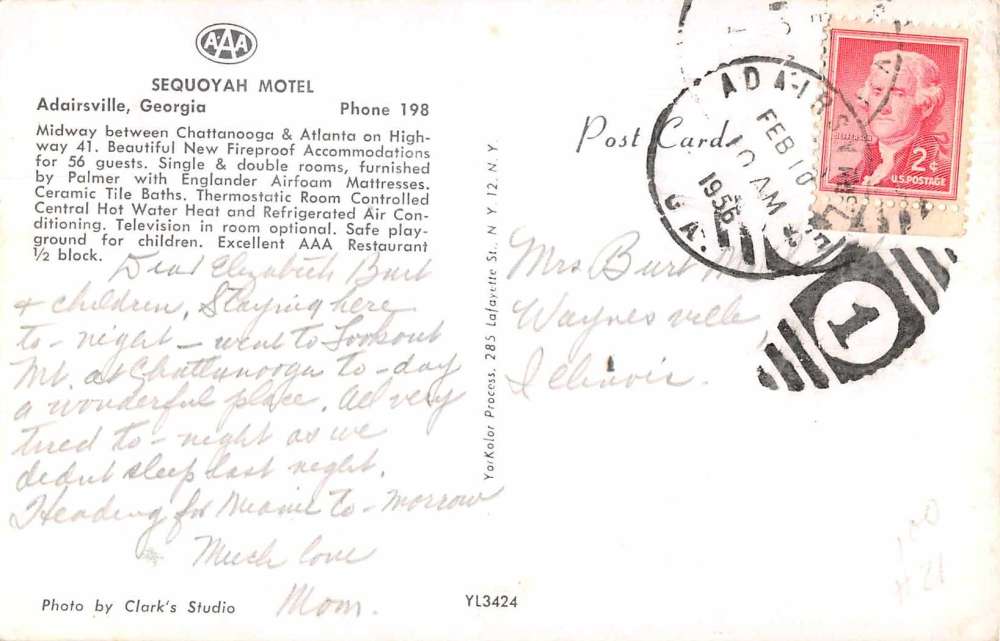 AAA
SEQUOYAH MOTEL
Adairsville, Georgia Phone 198
Midway between Chattanooga & Atlanta on High-
way 41. Beautiful New Fireproof Accommodations
for 56 guests. Single & double rooms, furnished
by Palmer with Englander Airfoam Mattresses.
Ceramic Tile Baths. Thermostatic Room Controlled
Central Hot Water Heat and Refrigerated Air Con-
ditioning. Television in room optional. Safe play-
ground for children. Excellent AAA Restaurant
½ block.
Dear Elizabeth Burt
+ children, Staying here
to-night - went to Lookout
Mt. at Chattanooga to-day
a wonderful place. All very
tired to-night as we
didnt sleep last night.
Heading for Miami to-morrow
Much love
Mom.
Photo by Clark's Studio
YL3424
YorKolor Process, 285 Lafayette St., N Y 12, N. Y.
Post Card
ADAIRSVILLE
FEB 10
10 AM
1956
GA.
JEFFERSON
2¢
U.S. POSTAGE
1
Mrs Burt
Waynesville,
Illinois.